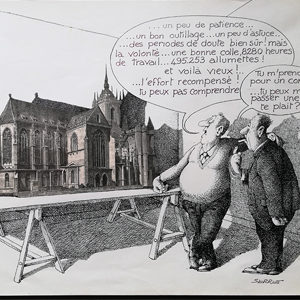 ...un peu de patience...
...un bon outillage...un peu d'astuce...
...des periodes de doute bien sûr! mais
la volonté...une bonne colle 8280 heures
de travail...495.253 allumettes!
et voilà vieux!...
...l'effort recompensé!
tu peux pas comprendre
Tu m'prend
pour un con
...tu peux m
passer une
te plait?